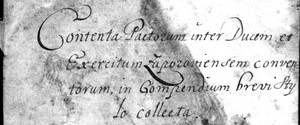 Contenta Pactorum inter Ducem et
Exercitum Zaporoviensem conven
torum, in Compendium brevi Sty
lo collecta.